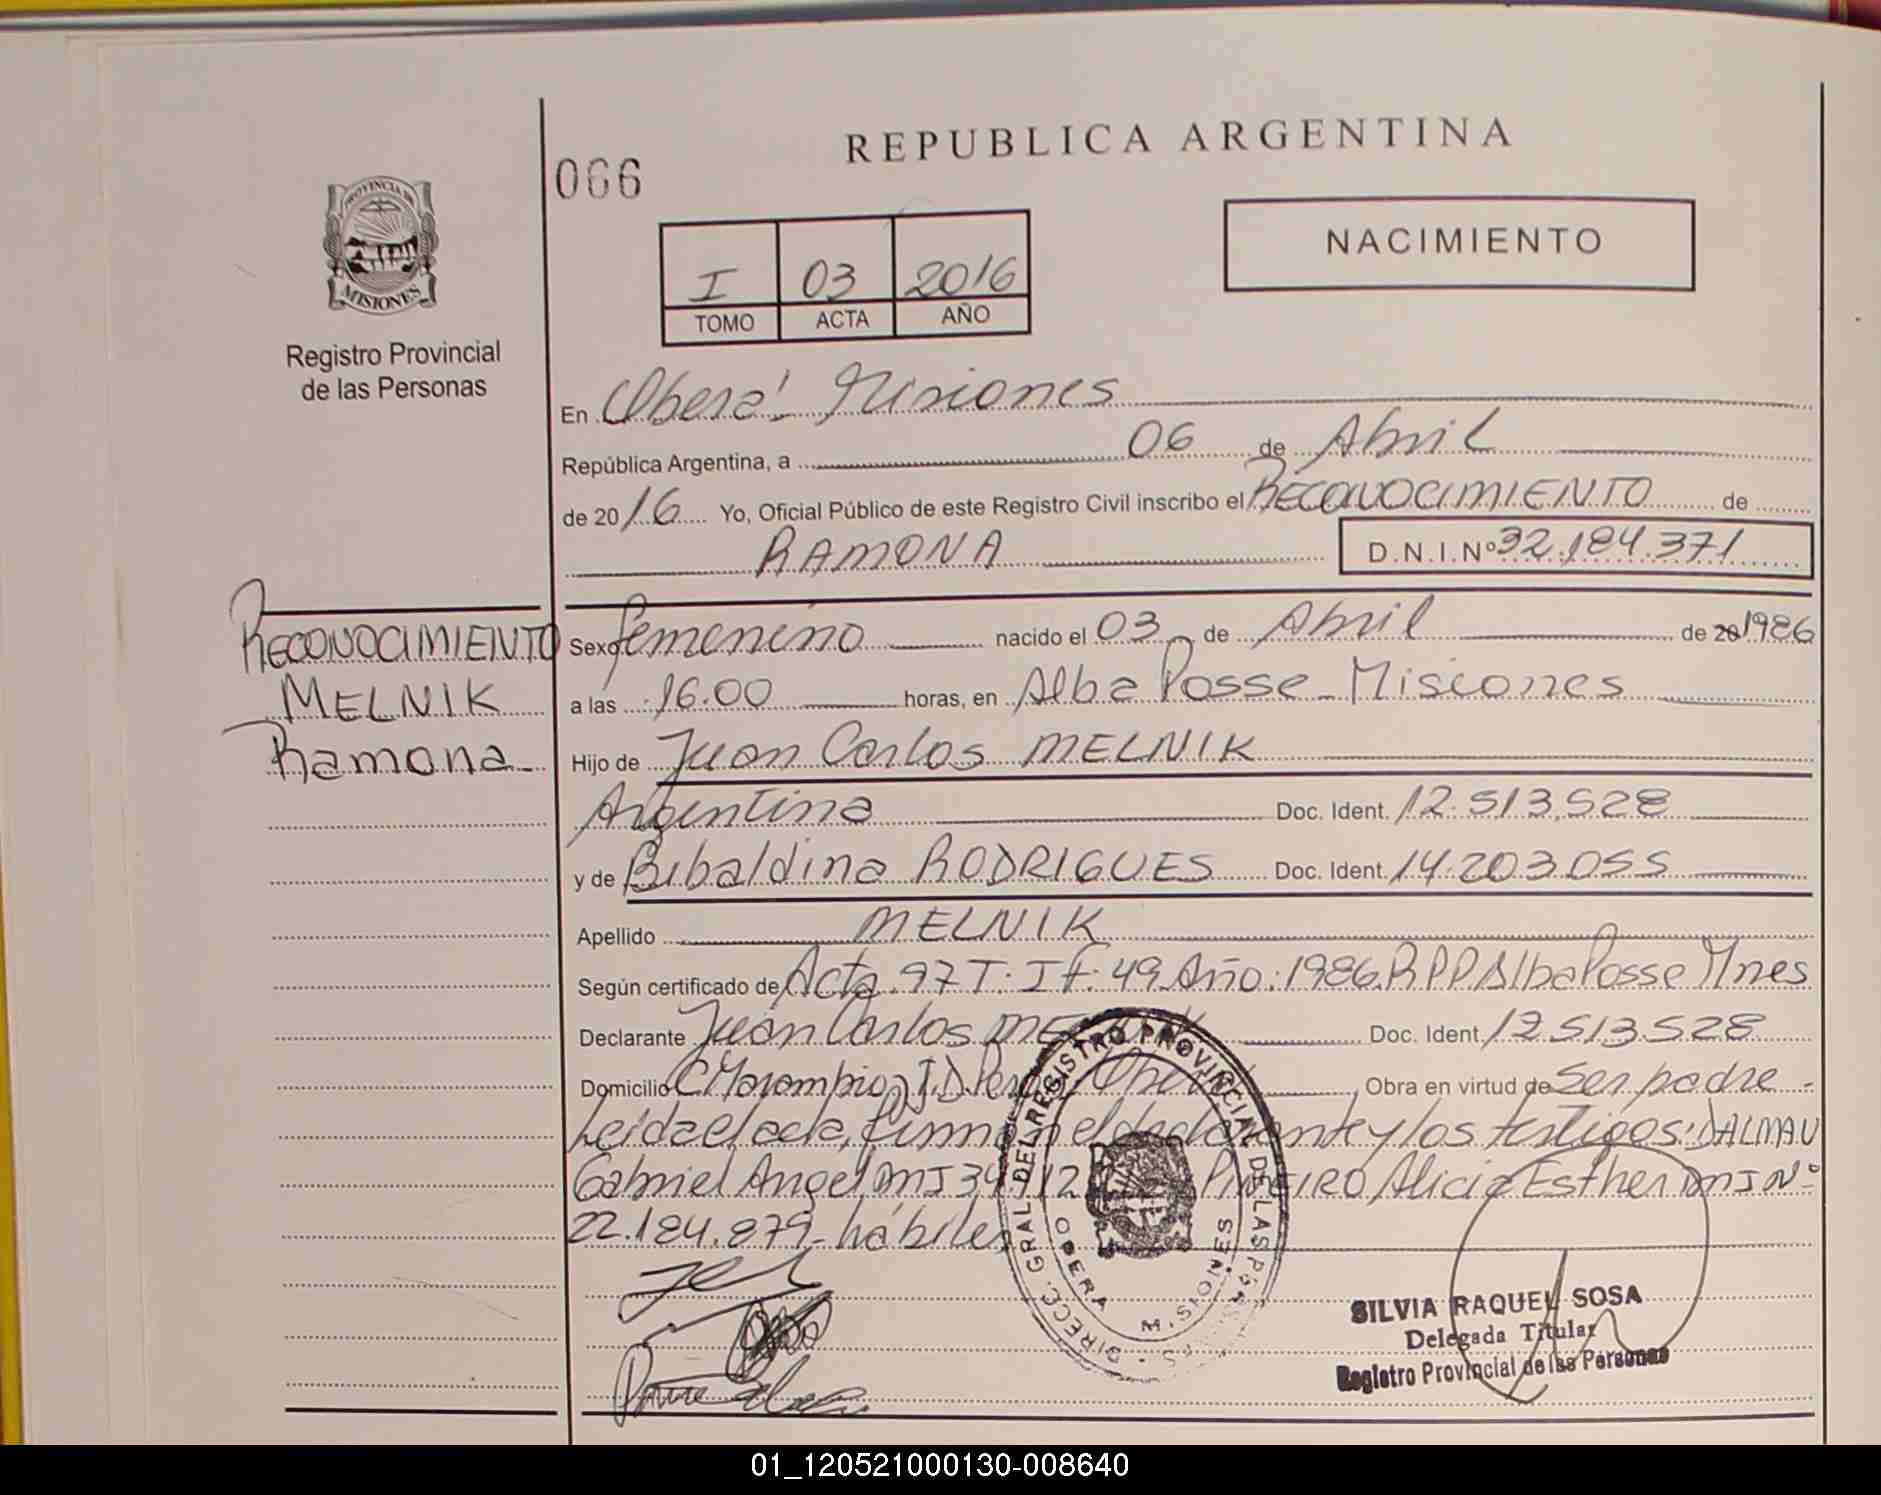 REPUBLICA ARGENTINA
066
NACIMIENTO
PROVINCIA DE
MISIONES
Registro Provincial
de las Personas
I 03 2016
TOMO ACTA AÑO
En Oberá Misiones
República Argentina, a 06 de Abril
de 2016 Yo, Oficial Público de este Registro Civil inscribo el RECONOCIMIENTO de
RAMONA D.N.I.Nº 32.184.371
RECONOCIMIENTO
MELNIK
Ramona
Sexo femenino nacido el 03 de Abril de 20 1986
a las 16.00 horas, en Alba Posse - Misiones
Hijo de Juan Carlos MELNIK
Argentina Doc. Ident. 12.513.528
y de Bibaldina RODRIGUES Doc. Ident. 14.203.055
Apellido MELNIK
Según certificado de Acta 97 T: I F: 49 Año: 1986. RPP Alba Posse Mnes
Declarante Juan Carlos Doc. Ident. 12.513.528
Domicilio C Obra en virtud de Ser padre -
Leída el acta, y los testigos: DALMAU
Gabriel Angel, MI Alicia Esther MI Nº
22.184.879 - hábiles
DIRECC. GRAL DEL REGISTRO PROVINCIAL DE LAS PERSONAS
OBERA MISIONES
SILVIA RAQUEL SOSA
Delegada Titular
Registro Provincial de las Personas
01_120521000130-008640